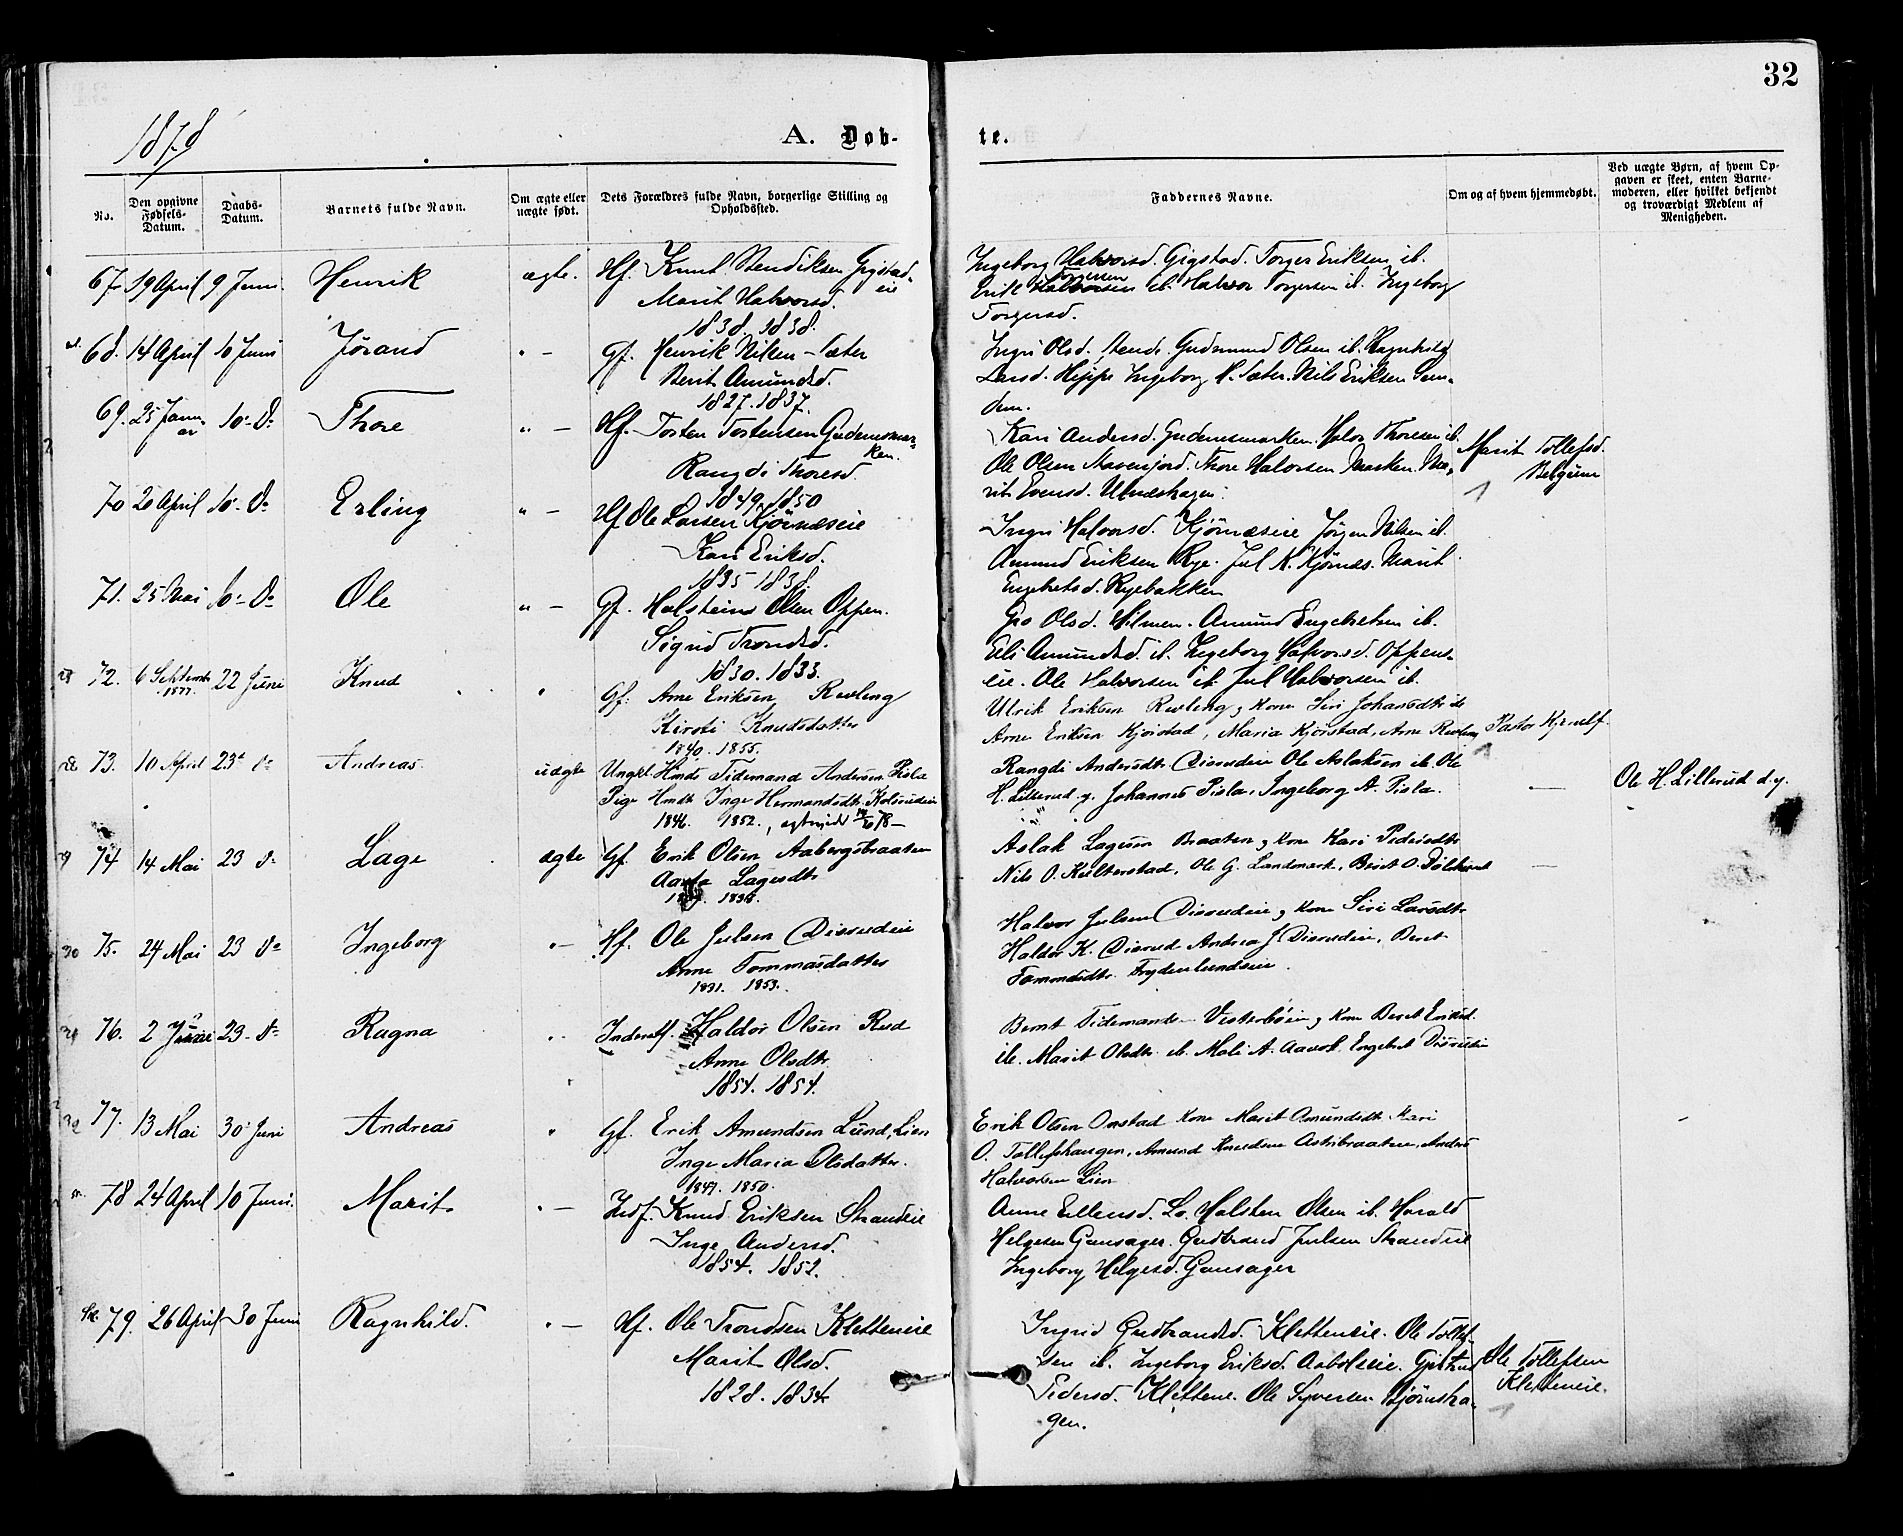 32
1878
A. Døb-
te.
No.
Den opgivne Fødsels-Datum.
Daabs-Datum.
Barnets fulde Navn.
Om ægte eller uægte født.
Dets Forældres fulde Navn, borgerlige Stilling og Opholdssted.
Faddernes Navne.
Om og af hvem hjemmedøbt.
Ved uægte Børn, af hvem Op-
gaven er skeet, enten Barne-
moderen, eller hvilket bekjendt
og troværdigt Medlem af
Menigheden.
67 19 April 9 Juni Henrik ægte. Hf. Knut Gigstad-
eie
Marit Halvorsd.
1838. 1838.
Ingeborg Halvorsd. Gigstad. Torger Eriksen ib.
Torgersen
Erik Halvorsen ib. Halvor Torgersen ib. Ingeborg
Torgersd.
68. 14 April 10 Juni Jørand " — Gf. Henrik Nilsen - Sæter
Berit Amundsd.
1827. 1837.
Ingri Olsd. Gudmund Olsen ib. Ragnhild
Larsd. Ingeborg N. Sæter. Nils Eriksen
69. 25 Janu-
ar 10- Do Thore " — Hf. Torsten Torstensen Gudmesmar-
ken.
Rangdi Thoresd.
1849. 1850
Kari Andersd. Gudmesmarken. Halvor Thoresen ib.
Ole Olsen Thore Halvorsen Marken. Ma-
rit Evensd. Ulnæshagen.
Marit Tollefsd.
Belgum
70 20 April 10- Do Erling " — Hf Ole Larsen Kjørnæseie
Kari Eriksd.
1835 1838.
Ingri Halvorsd. Kjørnæseie Jørgen Nilsen ib.
Amund Eriksen Rye. Jul K. Kjørnæs. Marit
Engebretsd. Ryebakken
71. 25 Mai 10- Do Ole " — Gf. Halstein Olsen Oppen.
Sigrid Trondsd.
1830. 1833.
Gro Olsd. Hilmen. Amund Engebretsen ib.
Eli Amundsd. ib. Ingeborg Halvorsd. Oppens-
eie. Ole Halvorsen ib. Jul Halvorsen ib.
72. 6 Septembr
1877. 22 Juni Knud " Gf. Arne Eriksen Revling
Kirsti Knudsdatter
1840. 1855.
Ulrik Eriksen Revling, Kone Siri Johansdtr ib
Arne Eriksen Kjørstad, Maria Kjørstad, Arne Revling
Pastor Kjerulf
73. 10 April 23de do Andreas uægte Ungkl. Hmd. Tidemand Andersen Pisla
Pige Hmdt Inge Hermandsdtr. Kolsrudeie
1846. 1852.
Rangdi Andersdtr. Disrudeie Ole Aslaksen ib. Ole
H. Lillerud y. Johannes Pisla, Ingeborg A. Pisla.
—
Ole H. Lillerud d.y.
74 14 Mai 23 do Lage ægte Gf. Erik Olsen Aabergsbraaten
Aaste Lagesdtr
Aslak Lagesen Braaten, Kone Kari Pedersdtr
Nils O. Kulterstad, Ole G. Landmark, Berit O.
—
75. 24 Mai 23 do Ingeborg " — Hf. Ole Julsen Disrudeie
Anne Tommasdatter
1831. 1853.
Halvor Julsen Disrudeie, Kone Siri Larsdtr.
Haldor K. Disrud Andrea J. Disrudeie, Berit
Tommesdtr. Frydenlundseie.
76. 2 Juni 23- do Ragna " Inderst. Haldor Olsen Rud
Anne Olsdtr.
1854. 1854.
Bernt Tidemands- Vesterbøeie, Kone Berit Eriksd.
ib. Marit Olsdtr. ib. Mali A. Engebret Disrudeie
77. 13 Mai 30- Juni Andreas " Gf. Erik Amundsen Lund, Lien
Inge Maria Olsdatter.
1847. 1850.
Erik Olsen Onstad Kone Marit Amundsdtr. Mari
O. Tollefshaugen, Amund Knudsen Astribraaten, Anders
Halvorsen Lien
78 24 April 10 Juni. Marit " — Indf. Knud Eriksen Strandeie
Inge Andersd.
1854. 1852.
Anne Erlensd. Lo. Halsten Olsen ib. Harald
Helgesen Gausager. Gudbrand Julsen Strandeie
Ingeborg Helgesd. Gausager
79. 26 April 30 Juni Ragnhild. " — Hf. Ole Trondsen Kletteneie
Marit Olsd.
1828. 1834
Ingrid Gudbrandsd. Kletteneie. Ole Tollef-
sen ib. Ingeborg Eriksd. Aabolseie. Gjertrud
Pedersd. Klettene. Ole Syversen Bjørnsha-
gen.
Ole Tollefsen
Kletteneie.